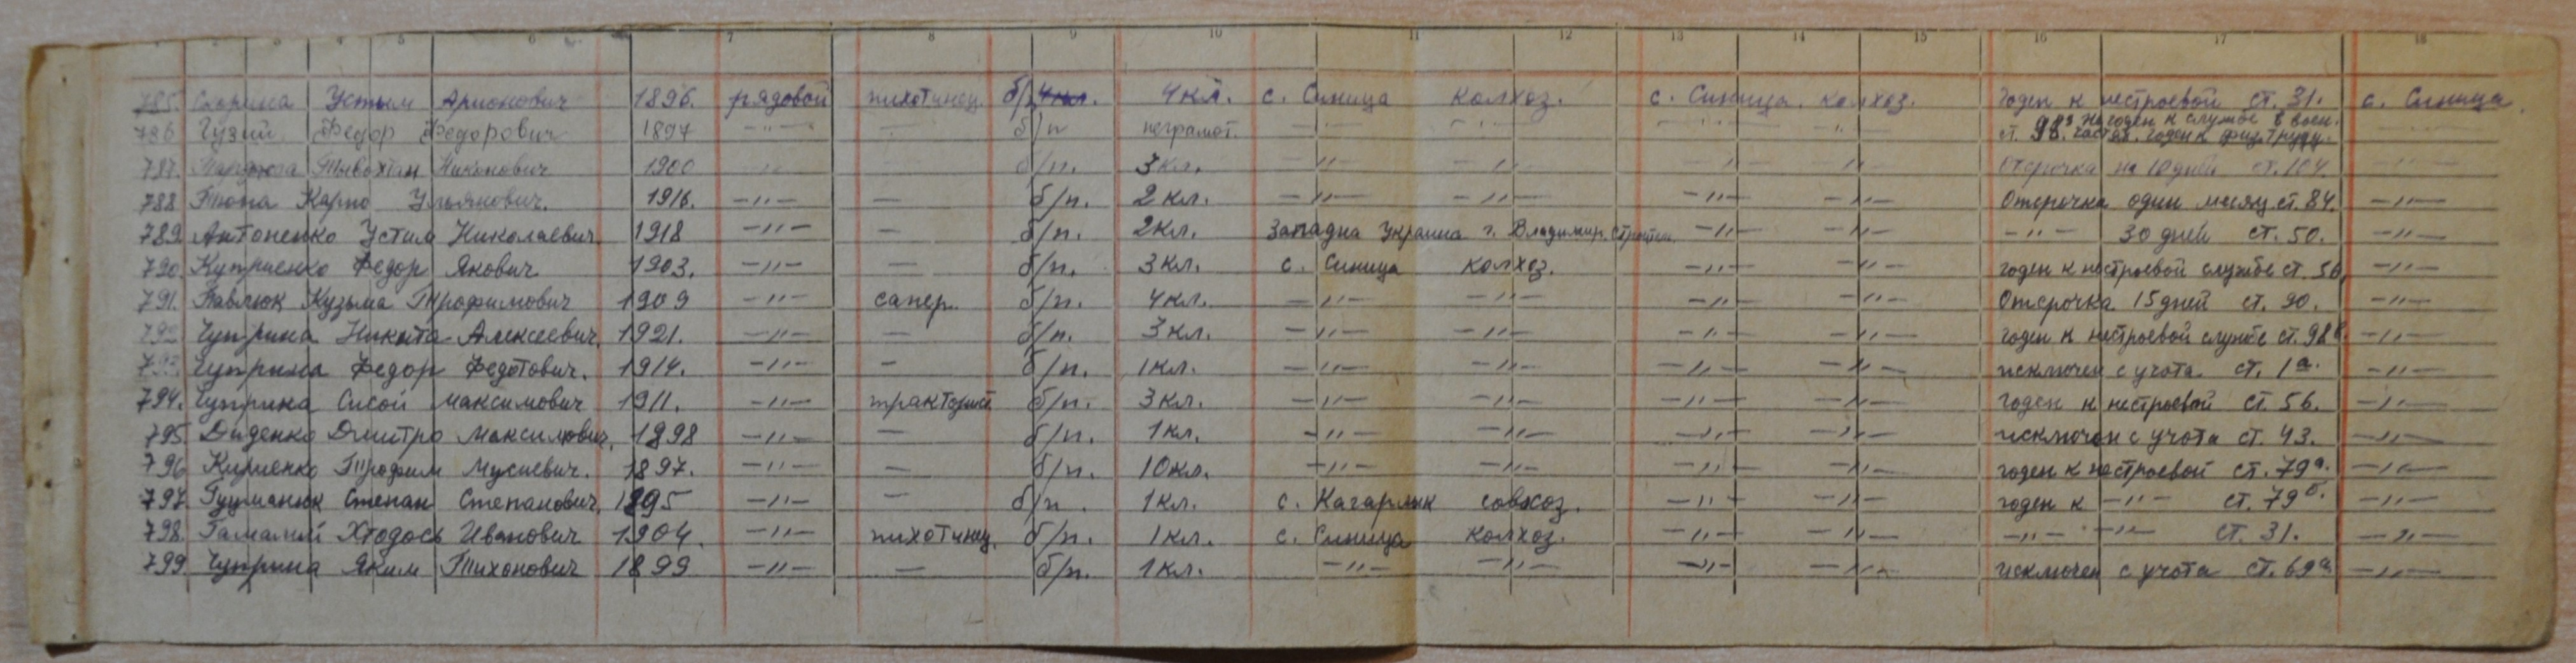 7 8 9 10 11 12 13 14 15 16 17 18
785. Устим Арионович 1896. рядовой пихотинец. б/п 4кл. 4 кл. с. Синица колхоз. с. Синица. колхоз. годен к нестроевой ст. 31. с. Синица.
786 Гузий Федор Федорович 1897 -"- — б/п неграмот. -"- -"- -"- -"- ст. 98. не годен к службе в воен. частях. годен к физ. труду. -"-
787. Никонович 1900 -"- б/п. 3 кл. -"- -"- -"- -"- Отсрочка на 10 дней ст. 104. -"-
788 Карпо Ульянович. 1916. -"- — б/п. 2 кл. -"- -"- -"- -"- Отсрочка один месяц ст. 84. -"-
789 Антоненко Устим Николаевич. 1918 -"- — б/п. 2 кл. Западна Украина г. Владимир. -"- -"- -"- 30 дней ст. 50. -"-
790 Куприенко Федор Якович 1903. -"- — б/п. 3 кл. с. Синица колхоз. -"- -"- годен к нестроевой службе ст. 56. -"-
791. Павлюк Кузьма Трофимович 1909 -"- сапер. б/п. 4 кл. -"- -"- -"- -"- Отсрочка 15 дней ст. 90. -"-
792 Чуприна Никита Алексеевич. 1921. -"- — б/п. 3 кл. -"- -"- -"- -"- годен к нестроевой службе ст. 98 -"-
793 Чуприна Федор Федотович. 1914. -"- — б/п. 1 кл. -"- -"- -"- -"- исключен с учота ст. 1а. -"-
794. Чуприна Сисой Максимович 1911. -"- тракторист б/п. 3 кл. -"- -"- -"- -"- годен к нестроевой ст. 56. -"-
795 Диденко Дмитро Максимович. 1898 -"- — б/п. 1 кл. -"- -"- -"- -"- исключен с учота ст. 43. -"-
796 Кириенко Трофим Мусиевич. 1897. -"- — б/п. 10 кл. -"- -"- -"- -"- годен к нестроевой ст. 79а. -"-
797. Гуцманюк Степан Степанович. 1895 -"- — б/п. 1 кл. с. Кагарлык совхоз. -"- -"- годен к -"- ст. 79б. -"-
798. Гамалий Хтодось Иванович 1904. -"- пихотинец. б/п. 1 кл. с. Синица колхоз. -"- -"- -"- -"- ст. 31. -"-
799 Чуприна Яким Тихонович 1899 -"- — б/п. 1 кл. -"- -"- -"- -"- исключен с учота ст. 69а -"-